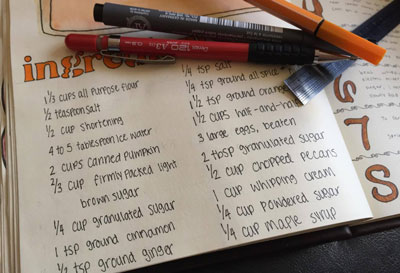 ingre
1 1/3 cups all purpose flour
1/2 teaspoon salt
1/2 cup shortening
4 to 5 tablespoon ice water
2 cups canned pumpkin
2/3 cup firmly packed light
brown sugar
1/4 cup granulated sugar
1 tsp ground cinnamon
1/2 tsp ground ginger
1/4 tsp salt
1/4 tsp ground all spice
1/2 tsp ground orange
1 1/2 cups half-and-ha
3 large eggs, beaten
2 tbsp granulated sugar
1/2 cup chopped pecans
1 cup whipping cream
1/4 cup powdered sugar
1/4 cup maple syrup
6
7
S